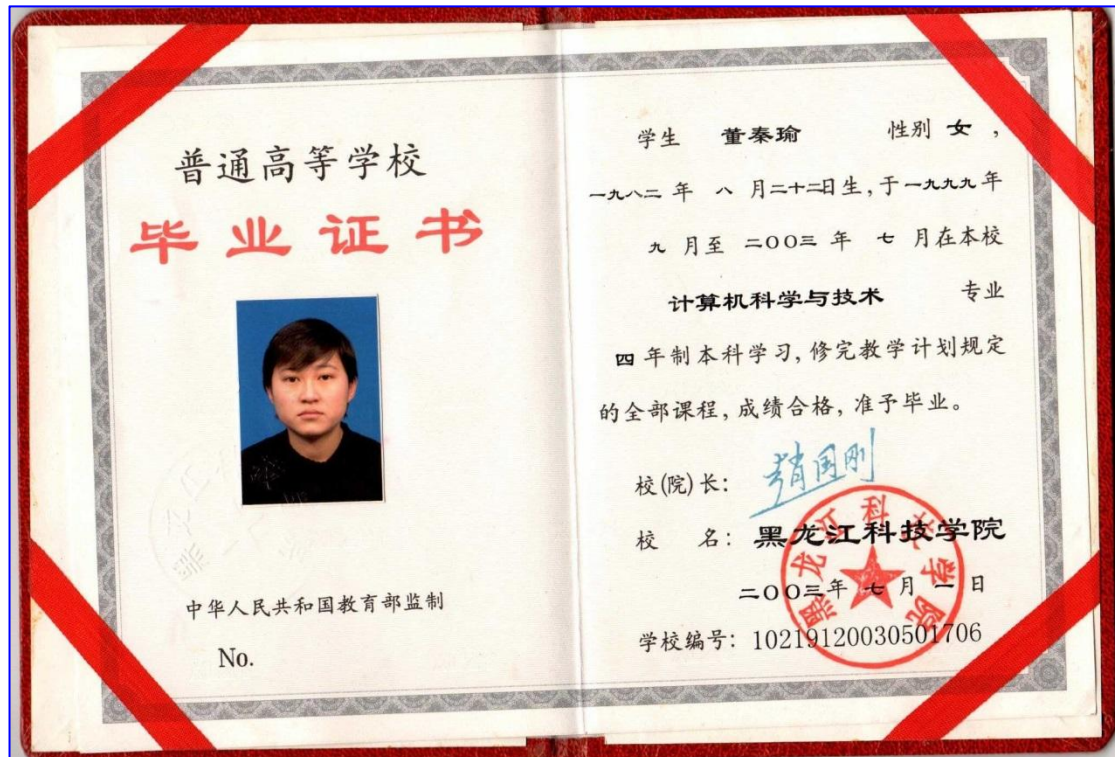 普通高等学校
毕业证书
中华人民共和国教育部监制
No.
学生 董秦瑜 性别 女 ,
一九八二 年 八 月二十二日生,于一九九九年
九 月至 二〇〇三 年 七 月在本校
计算机科学与技术 专业
四 年制本科学习,修完教学计划规定
的全部课程,成绩合格,准予毕业。
校(院)长: 赵国刚
校 名: 黑龙江科技学院
二〇〇三年 七 月 一 日
学校编号: 10219120030501706
黑龙江科技学院